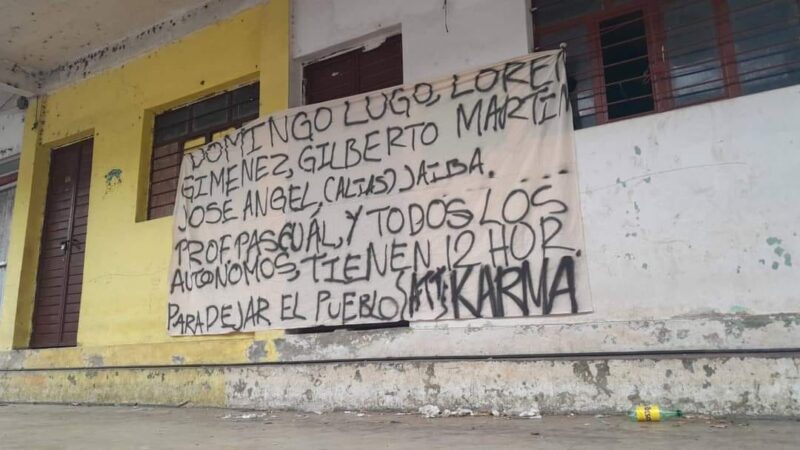 DOMINGO LUGO, LOREN
GIMENEZ, GILBERTO MARTÍN
JOSE ANGEL, (ALIAS) JAIBA. ...
PROF. PASCUÁL, Y TODOS LOS
AUTONOMOS, TIENEN 12 HOR.
PARA DEJAR EL PUEBLO KARMA